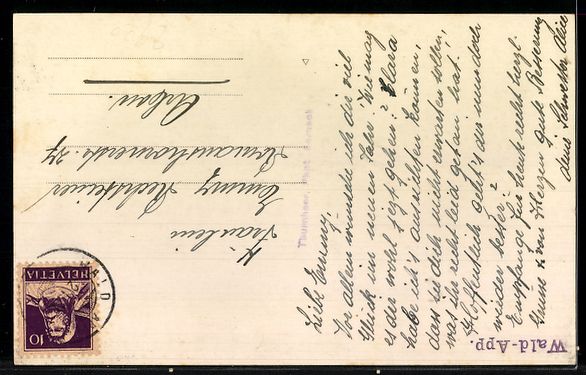 Lieb Emmy!
Vor allem wünsche ich dir viel
Glück im neuen Jahr. Wie mag
es dir wohl jetzt gehen? Klara
habe ich's ausrichten können,
dass sie dich nicht erwarten sollen,
was ihr recht leid getan hat.
Hoffentlich geht's dir nun doch
wieder besser?
Empfange für heute recht herzl.
Gruss u. von Herzen gute Besserung
deine Schwester Alice
Wald-App.
Fräulein
Emmy
Romanshornerstr. 37
Arbon.
HELVETIA
10
WALD